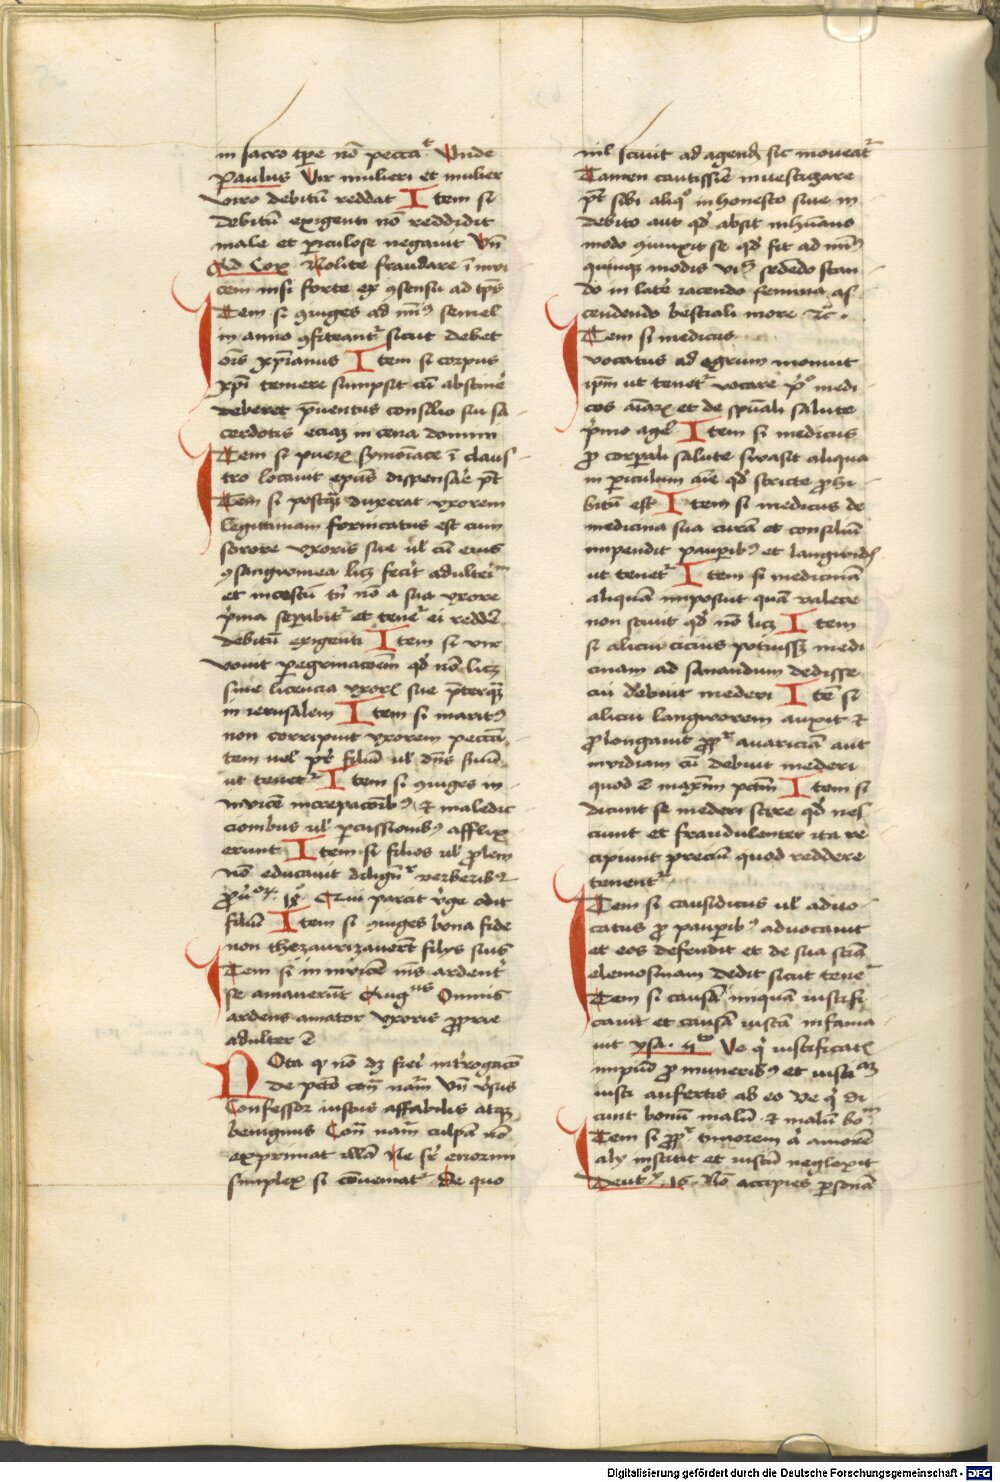 in sacro tpe nō peccat Unde
Paulus Vir mulieri et mulier
viro debitū reddat Item si
debitū exigenti nō reddidit
male et piculose negauit Vn̄
Ad Cor Nolite fraudare ī inui
cem nisi forte ex ꝯsensu ad tp̄s
Item si ꝯiuges ad minꝰ semel
in anno ꝯfiteantr sicut debet
oīs xp̄ianus Item si corpus
xp̄i temere sumpsit cū abstinē
deberet p̄uentus consilio sui sa
cerdotis eciaz in cena domini
Item si puerꝭ symoīace ī claus
tro locauit ep̄us dispensare pt̄
Item si postq̄ duxerat vxorem
legittimam fornicatus est cum
sorore vxoris sue ul cū eius
ꝯsangwinea licz fecit adulteriū
et incestū tn̄ nō a sua vxore
pma sepabitr et tener ei reddē
debitū exigenti Item si vir
vouit pegrinacōem qd nō licz
sine licencia vxorꝭ sue p̄terqz
in ierusalem Item si maritꝰ
non corripuit vxorem peccan
tem uel pr filiū ul dn̄s suū
ut tenetr Item si ꝯiuges in
inuicē increpacōibꝰ et maledic
cionibus ul pcussionibꝰ afflix
erunt Item si filios ul prolem
nō educauit diligēr verberibꝰ
prouor Qui parcit vge odit
filiū Item si ꝯiuges bona fide
non thezaurizauert filijs suis
Item si in inuicē nis ardentr
se amauerūt Augus Omnis
ardens amator vxoris proprie
adulter ē
Nota qꝫ nō dꝫ fieri introgacō
de pctō con̄ nam̄ Vn̄ vsus
Confessor iustus affabilis atqꝫ
benignus Con̄ nam̄ culpā nō
exprimat illā Ne sit enorm
simplex si cōueniat De quo
nil sciuit ad agendꝫ sic moueatr
Tamen cautissie inuestigare
pt̄ sibi aliqꝫ inhonesto siue in
debito aut qd absit inhūano
modo ꝯiunxit se qd fit ad minꝰ
quinqꝫ modis viꝫ sedēdo stan
do in latē iacendo femina as
cendendo bestiali more rc.
Item si medicus
vocatus ad egrum monuit
ipm ut tenetr vocare pꝰ medi
cos aīarꝫ et de spūali salute
pmo agē Item si medicus
pro corpali salute suasit aliqua
in piculum aīe qd stricte prohi
bitū est Item si medicus de
medicina sua curā et consiliū
impendit paupibꝰ et langwidꝭ
ut tenetr Item si medicinā
aliquā imposuit quā valere
non sciuit qd nō licz Item
si alicui cicius potuissꝫ medi
cinam ad sanandum dedisse
cui debuit mederi Itē si
alicui langworem auxit et
prolongauit propr auariciā aut
inuidiam cū debuit mederi
quod ē maxim pctm Item si
dicunt se mederi scire qd nes
ciunt et fraudulenter ita re
cipiunt preciū quod reddere
tenentr
Item si causidicus ul aduo
catus pro paupibꝰ aduocauit
et eos defendit et de sua sciā
elemosinam dedit sicut tener
Item si causā iniquā iustifi
cauit et causā iustā infama
uit ysa. 5to Ve qꝭ iustificatꝭ
impiū pro muneribꝰ et iusticiaꝫ
iusti aufertis ab eo Ve qꝭ di
cunt bonū malū et malū bom
Item si propr timorem ul amorē
alij institit et iustū neglexit
Deutꝰ. 16. Nō accipies psonā
Digitalisierung gefördert durch die Deutsche Forschungsgemeinschaft - DFG